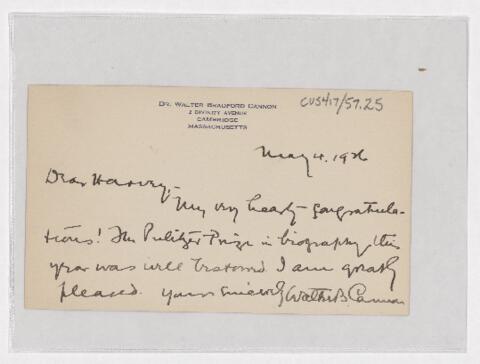 DR. WALTER BRADFORD CANNON
2 DIVINITY AVENUE
CAMBRIDGE
MASSACHUSETTS
CUS417/57.25
May 4. 1926
Dear Harvey,-
My very hearty congratula-
tions! The Pulitzer Prize in biography this
year was well bestowed. I am greatly
pleased. Yours sincerely Walter B. Cannon